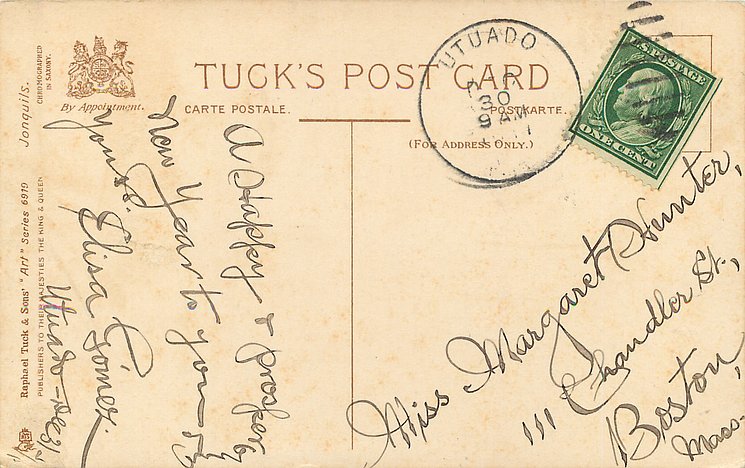 TUCK'S POST CARD
By Appointment.
CARTE POSTALE.
POSTKARTE.
(FOR ADDRESS ONLY.)
UTUADO
30
9 AM
U.S. POSTAGE
ONE CENT
Jonquils.
CHROMOGRAPHED
IN SAXONY.
Raphael Tuck & Sons' "Art" Series 6919
PUBLISHERS TO THEIR MAJESTIES THE KING & QUEEN
A Happy &
prosper
New Year to you
yours.
Elisa Gómez.
Utuado
Miss Margaret Hunter,
111 Chandler St.,
Boston,
Mass.